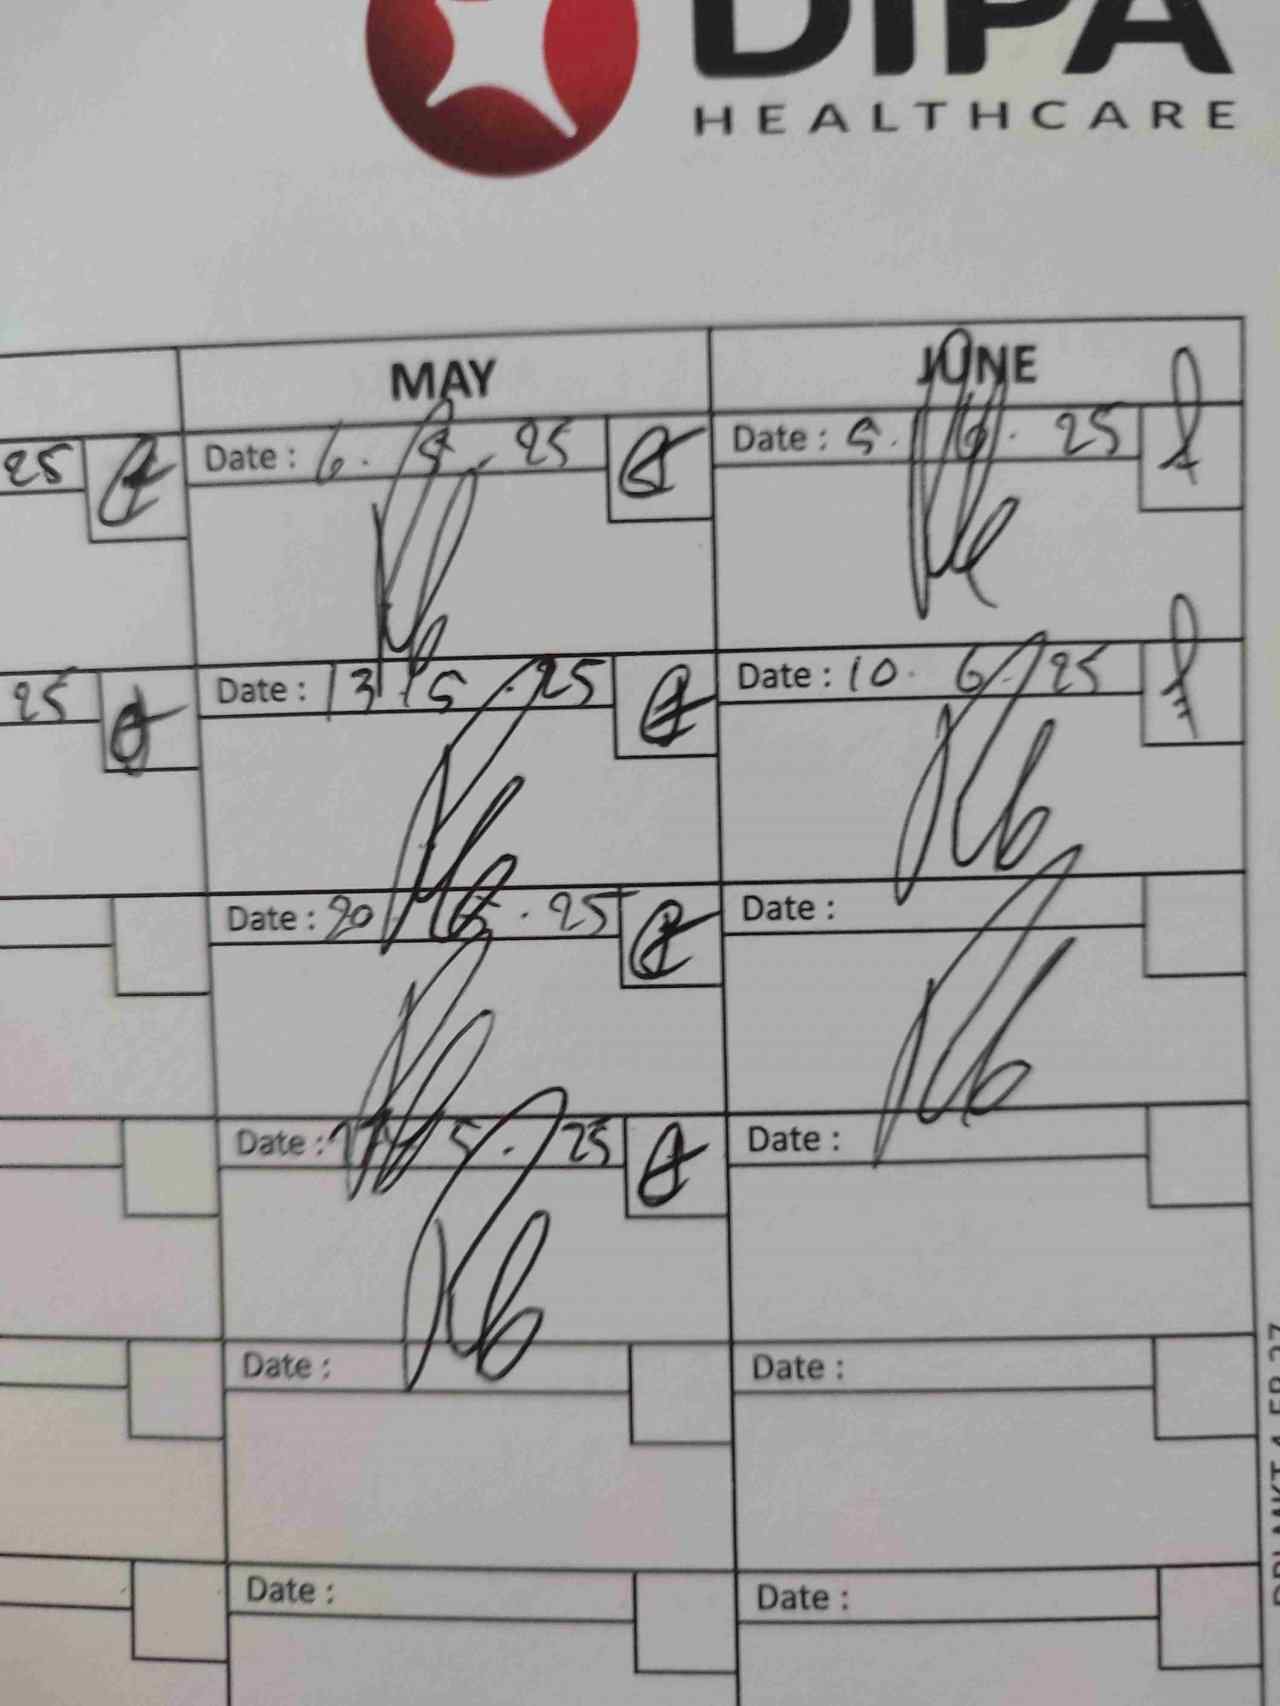 DIPA
HEALTHCARE
MAY JUNE
25 Date : 6. 5. 25 Date : 5. 6. 25
25 Date : 13 5 . 25 Date : 10. 6. 25
Date : 20 . 5 . 25 Date :
Date : 27 5 . 25 Date :
Date : Date :
Date : Date :